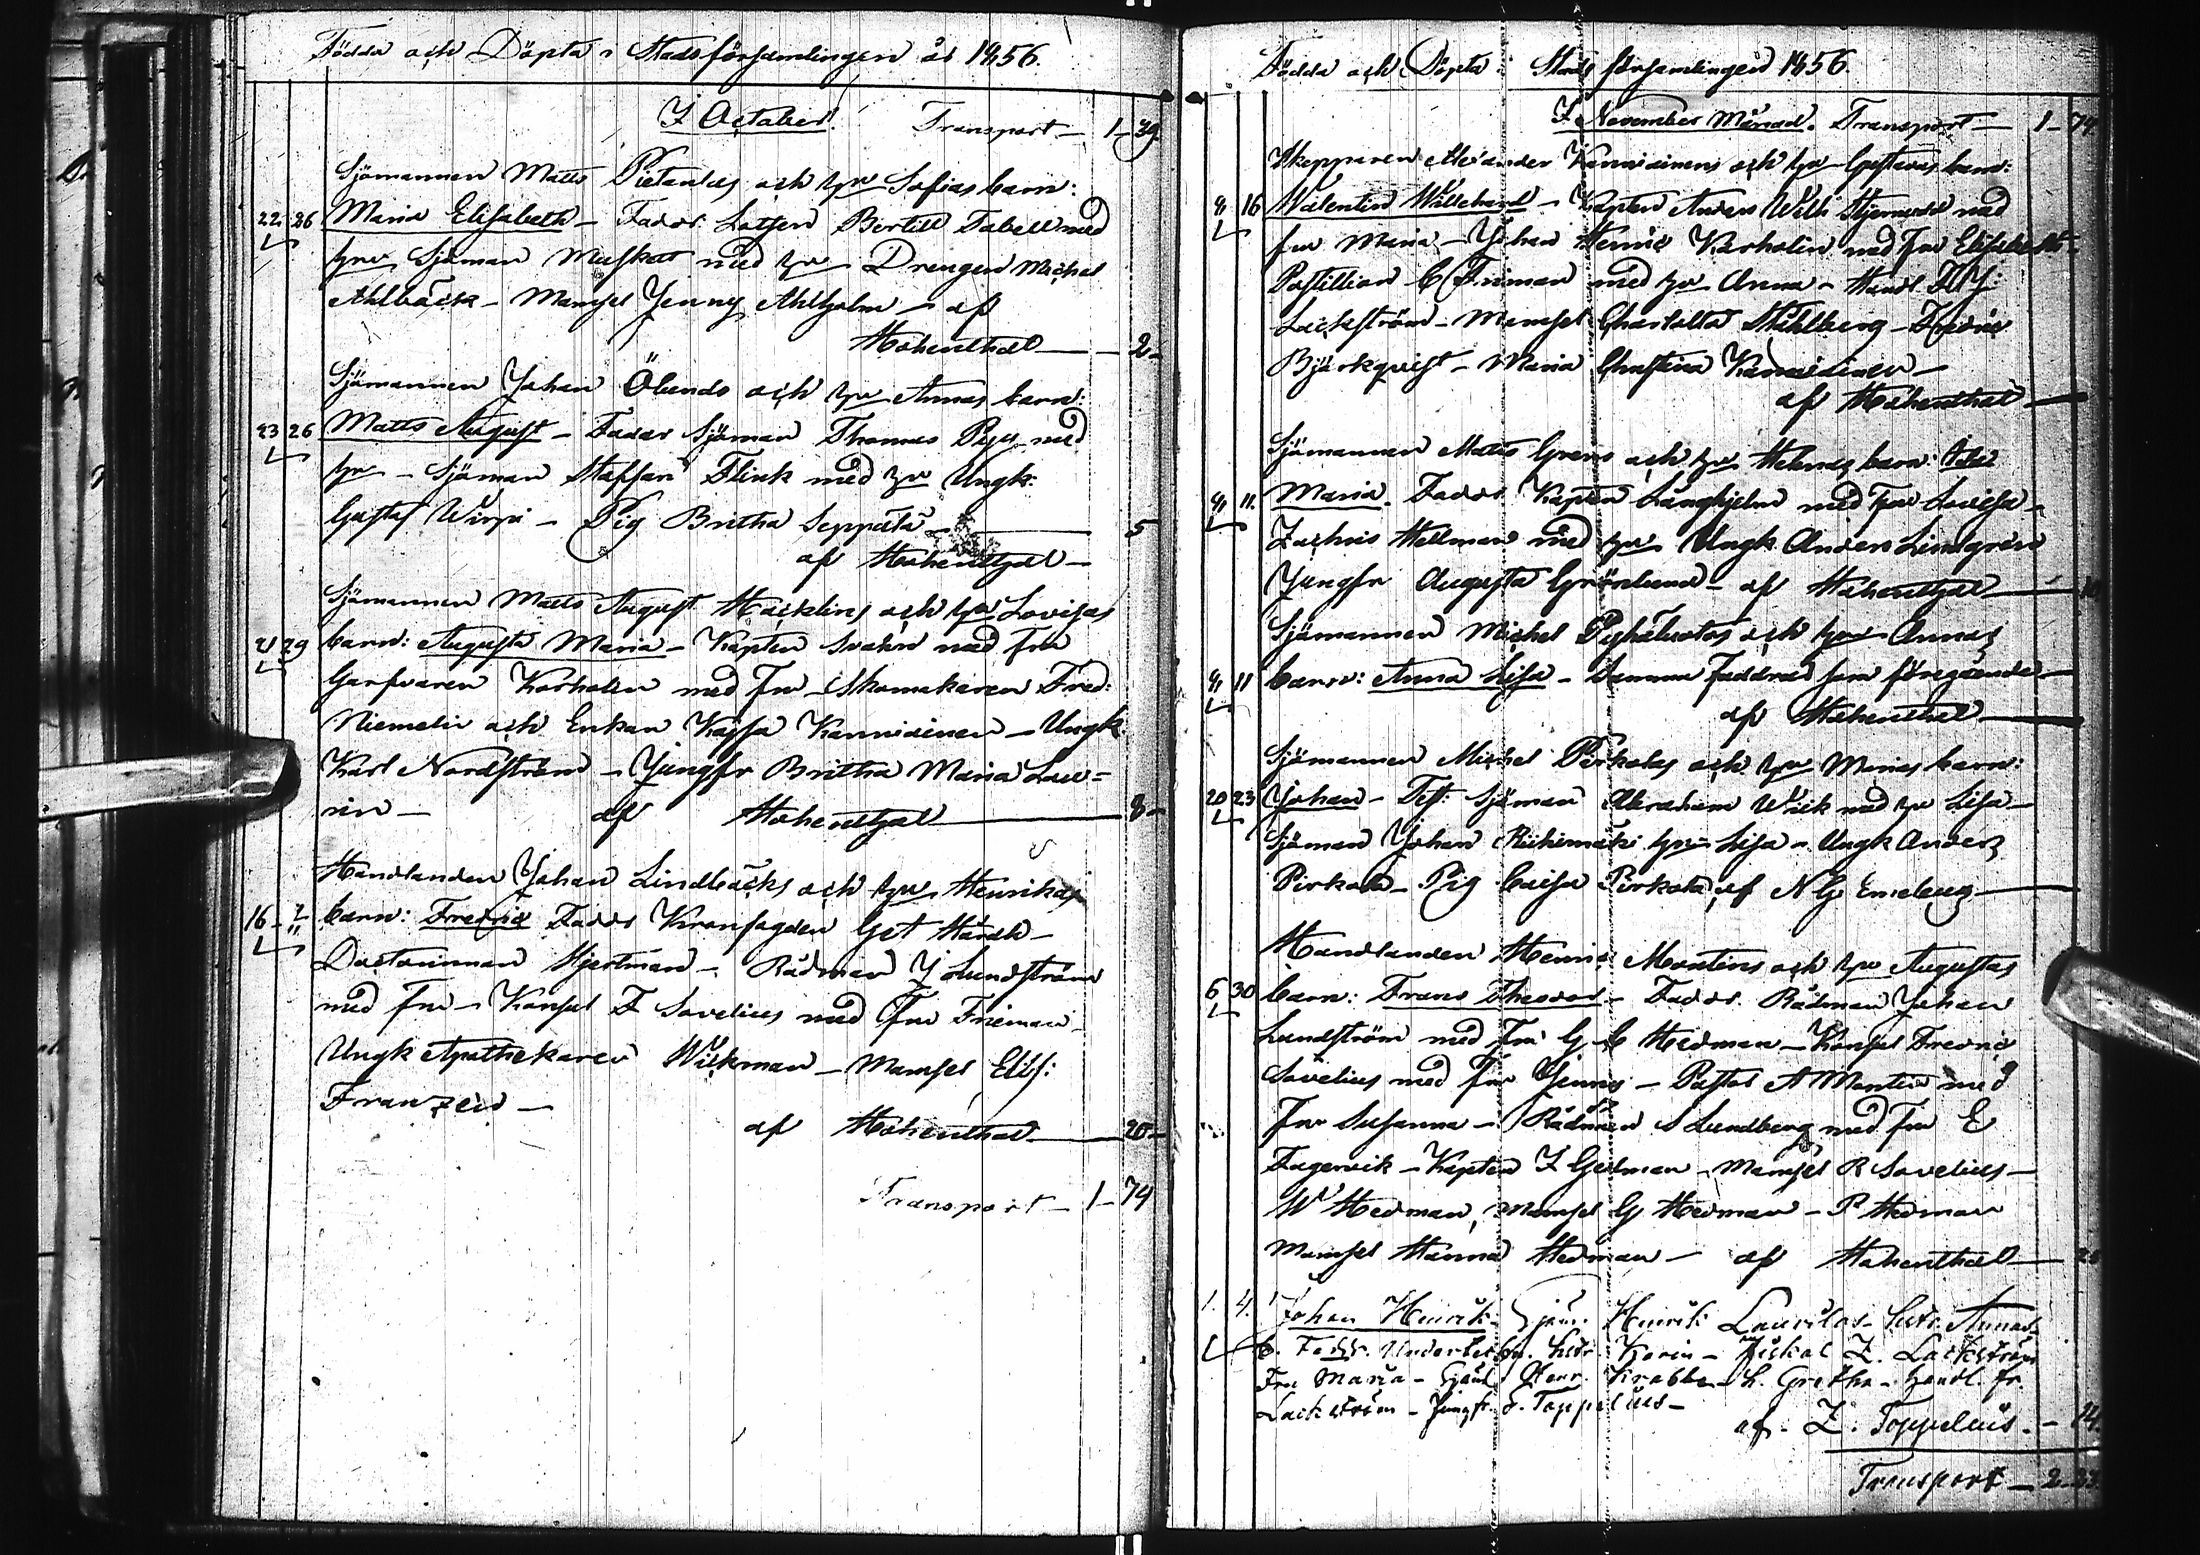 Födda och Döpta i Stadsförsamlingen år 1856.
I October. Transport — 1 — 39
Sjömannen Matts Pietanlus och hu Sofias barn:
22 26 Maria Elisabeth — Faddr. Lotsen Bertill Tabell med
hu Sjöman Muskat med hu Drengen Michel
Ahlbäck — Mamsel Jenny Ahlholm — af
Hohenthal — 2 —
Sjömannen Johan Ölands och hu Annas barn:
23 26 Matts August — Faddr Sjöman Thomas Pyy med
hu — Sjöman Staffan Flink med hu Ungk:
Gustaf Wirpi — Pig Britha Seppälä — 5
af Hohenthal —
Sjömannen Matts August Häcklins och hu Lovisas
21 29 barn: Augusta Maria — Kapten Svahn med fru
Garfvaren Karholin med fru Skomakaren Fred:
Niemelin och Enkan Kajsa Kanniainen — Ungk.
Karl Nordström — Jungfr Britha Maria Lau=
rin — af Hohenthal — 8 —
Handlanden Johan Lindbäcks och hu Henrikas
16 2/11 barn: Fredric Faddr Kronfogden Got Hårdh —
Doctorinnan Hjertman — Rådman J Lundström
med fru — Konsul F Sovelius med fru Frieman
Ungk Apothekaren Wickman — Mamsel Elis:
Franzen —
af Hohenthal — 20 —
Transport — 1 — 74
Födda och Döpta i Stads församlingen 1856.
I November Månad. Transport — 1 — 74
Skepparen Alexander Kanniainens och hu Gustavas barn:
9 16 Valentin Willehard — Kapten Anders Wilh: med
fru Maria — Johan Henric Karholin med fru Elisabeth —
Postillion C Friman med hu Anna — Handl F J:
Lackström — Mamsel Charlotta Ståhlberg — Fredric
Björkqvist — Maria Christina Kanniainen —
af Hohenthal —
Sjömannen Matts Grens och hu Helenas barn: Ida
9 11. Maria. Faddr Kapten Långhjelm med fru Lovisa —
Zachris Hellman med hu Ungk Anders Lindgren
Jungfr Augusta Grönlund — af Hohenthal — 10
Sjömannen Michel Pyhäluotos och hu Annas
9 11 barn: Anna Lisa — Samma faddrar som föregående —
af Hohenthal —
Sjömannen Michel Pirkolas och hu Marias barn:
20 23 Johan — Test: Sjöman Abraham Wiik med hu Lisa —
Sjöman Johan Riihimäki hu Lisa — Ungk Anders
Pirkola — Pig Caisa Pirkola af N G Emeleus —
Handlanden Henric Montins och hu Augustas
6 30 barn: Frans Theodor — Faddr. Rådman Johan
Lundström med fru G C Hedman — Konsul Fredric
Sovelius med fru Jenny — Pastor A Montin med
fru Susanna — Rådman S Lundberg med fru E
Fagervik — Kapten F Gellman — Mamsel R Sovelius —
W Hedman, Mamsel G Hedman — P Hedman
Mamsel Hanna Hedman — af Hohenthal — 20
1. 4. Johan Henrik Sjöm. Henrik Laurilas — hustr. Annas
b. Faddr. Underlöjtn. hustr Karin — Fiskal Z. Lackström
Fru Maria — Sjöm Henr. Krabbe — h. Gretha — handl. fr.
Lackström — Jungfr. S. Toppelius —
af Z. Toppelius. — 14.
Transport — 2 — 33